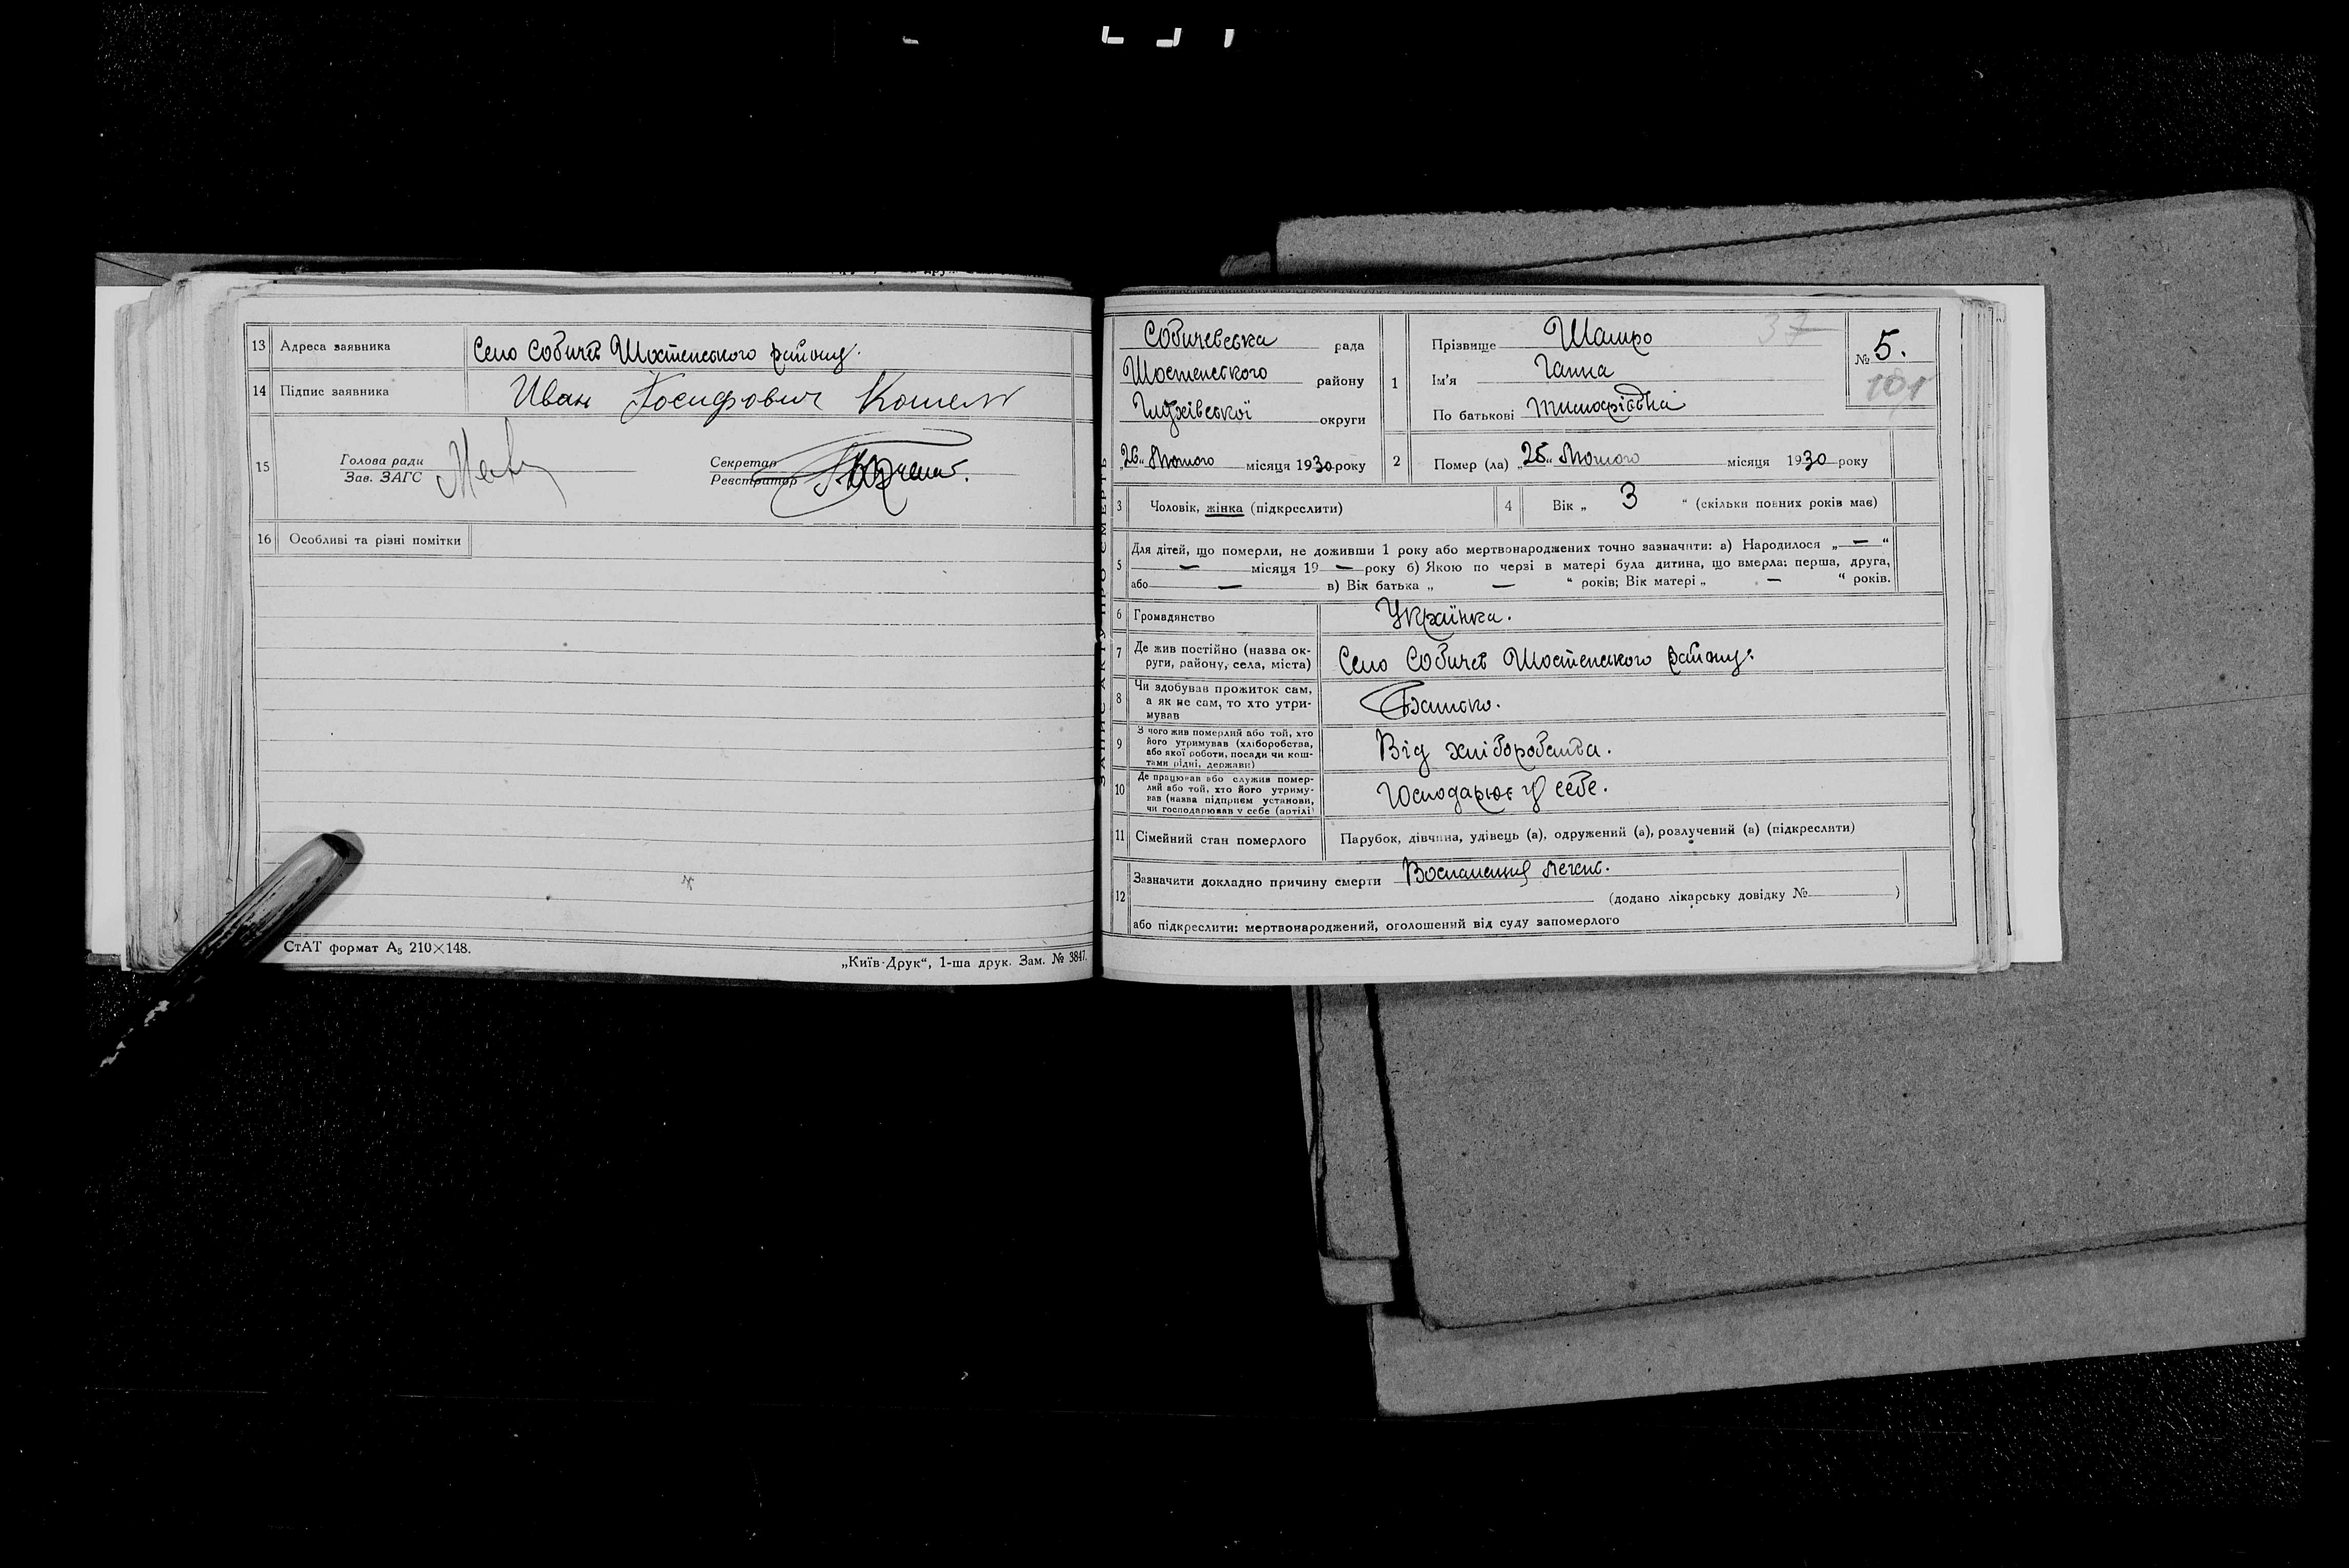 13 Адреса заявника Село Собичев Шостенського району.
14 Підпис заявника Иван Иосифович Кошель
15 Голова ради
Зав. ЗАГС
Секретар
Реєстратор
16 Особливі та різні помітки
СтАТ формат А5 210×148.
„Київ-Друк“, 1-ша друк. Зам. № 3847.
ЗАПИС АКТУ ПРО СМЕРТЬ
Собичевська рада
Шостенського району
Глухівської округи
„26„ Лютого місяця 1930 року
1 Прізвище Шапро 37
Ім'я Ганна
По батькові Тимофіївна
№ 5.
101
2 Помер (ла) „25„ Лютого місяця 1930 року
3 Чоловік, жінка (підкреслити)
4 Вік „ 3 “ (скільки повних років має)
5 Для дітей, що померли, не доживши 1 року або мертвонароджених точно зазначити: а) Народилося „—“
— місяця 19 — року б) Якою по черзі в матері була дитина, що вмерла: перша, друга,
або — в) Вік батька „ — “ років; Вік матері „ — “ років.
6 Громадянство Українка.
7 Де жив постійно (назва ок-
руги, району, села, міста) Село Собичев Шостенського району.
8 Чи здобував прожиток сам,
а як не сам, то хто утри-
мував Батько.
9 З чого жив померлий або той, хто
його утримував (хліборобства,
або якої роботи, посади чи кош-
тами рідні, держави) Від хліборобства.
10 Де працював або служив помер-
лий або той, хто його утриму-
вав (назва підприєм установи,
чи господарював у себе (артілі) Господарює у себе.
11 Сімейний стан померлого Парубок, дівчина, удівець (а), одружений (а), розлучений (а) (підкреслити)
12 Зазначити докладно причину смерти Воспаления легких.
(додано лікарську довідку № )
або підкреслити: мертвонароджений, оголошений від суду запомерлого